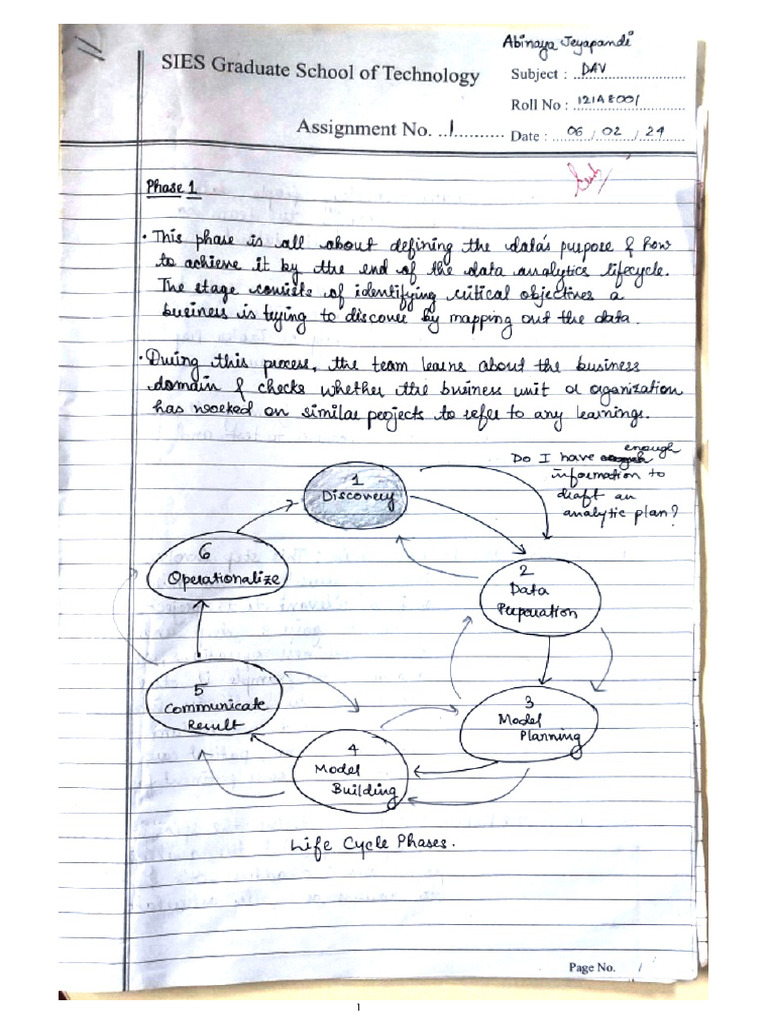 Abinaya Jeyapandi
SIES Graduate School of Technology
Subject : DAV
Roll No : 121A8001
Assignment No. 1
Date : 06 / 02 / 24
Phase 1
• This phase is all about defining the data's purpose & how
to achieve it by the end of the data analytics lifecycle.
The stage consists of identifying critical objectives a
business is trying to discover by mapping out the data.
• During this process, the team learns about the business
domain & checks whether the business unit or organization
has worked on similar projects to refer to any learnings.
Do I have enough
information to
draft an
analytic plan?
1
Discovery
6
Operationalize
2
Data
Preparation
5
Communicate
Result
3
Model
Planning
4
Model
Building
Life Cycle Phases.
Page No. 1
1